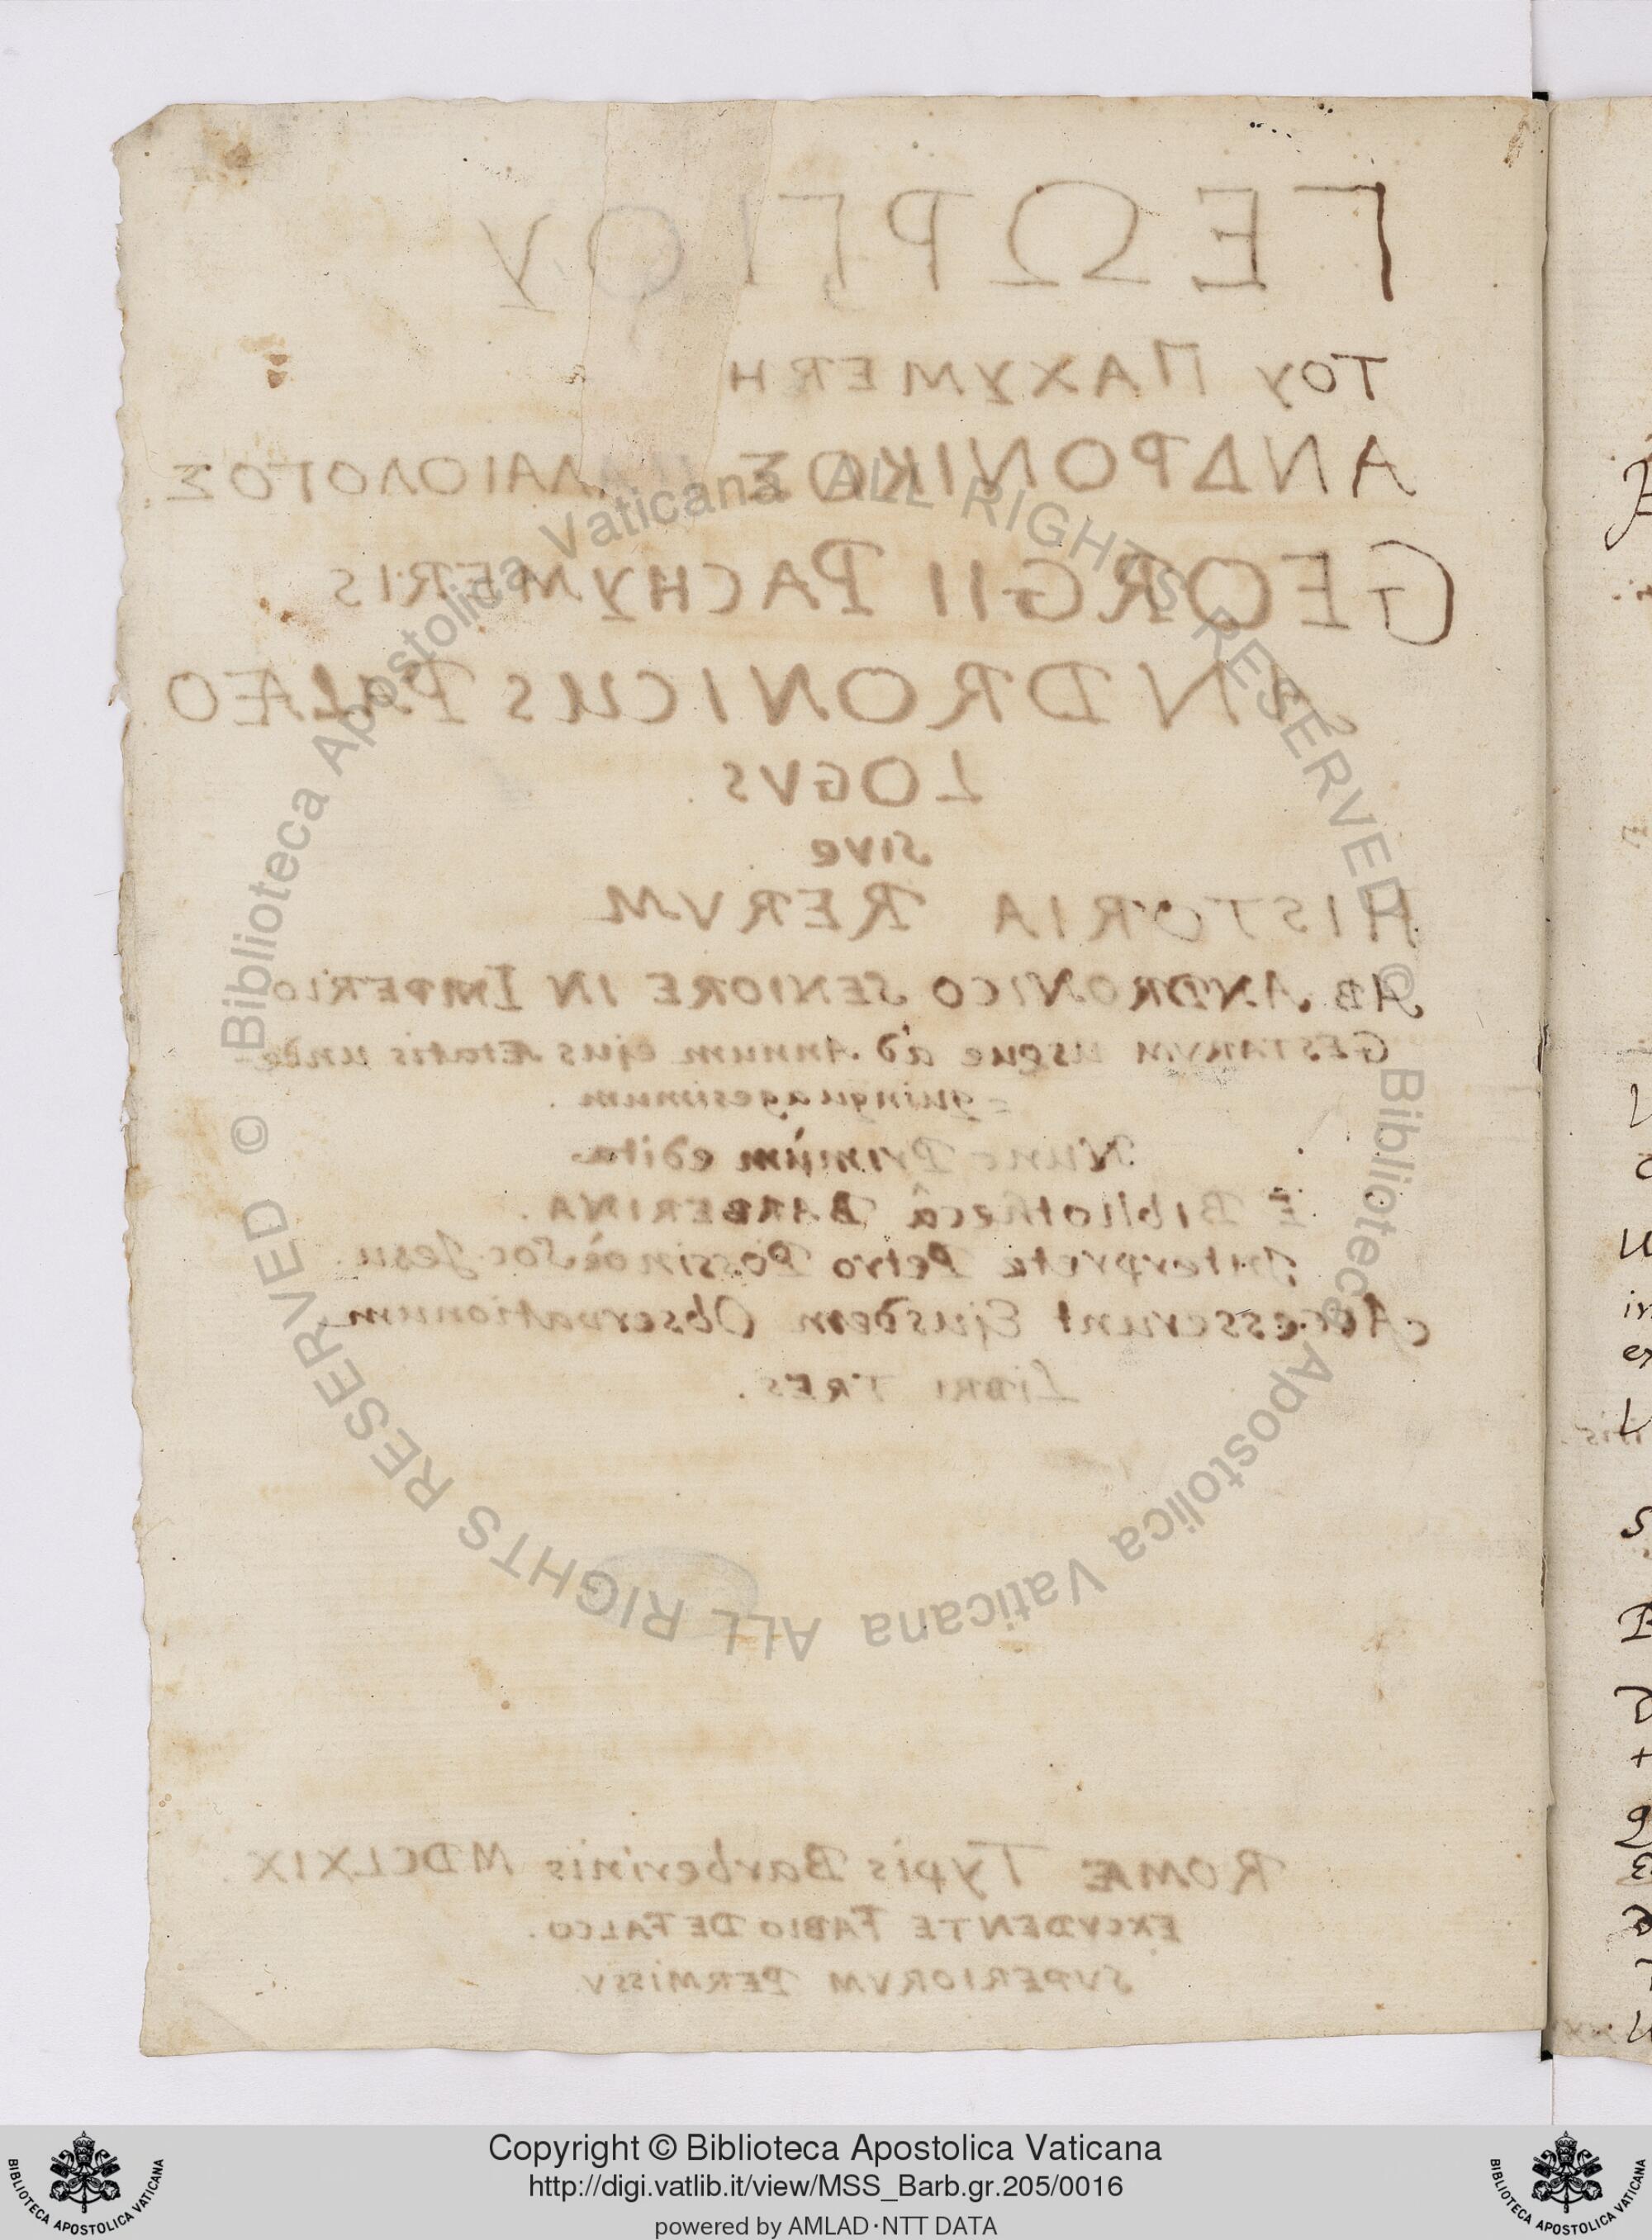 ΓΕΩΡΓΙΟΥ
ΤΟΥ ΠΑΧΥΜΕΡΗ
ΑΝΔΡΟΝΙΚΟΣ ΠΑΛΑΙΟΛΟΓΟΣ.
GEORGII PACHYMERIS
ANDRONICUS PALÆO
LOGVS
sive
HISTORIA RERVM
AB ANDRONICO SENIORE IN IMPERIO
GESTARVM usque ad Annum ejus Ætatis unde
=quinquagesimum.
Nunc Primùm edita.
È Bibliothecâ BARBERINA.
Interprete Petro Possino è Soc. Jesu.
Accesserunt Ejusdem Observationum
LIBRI TRES.
ROMÆ Typis Barberinis MDCLXIX.
EXCVDENTE FABIO DE FALCO.
SVPERIORVM PERMISSV
© Biblioteca Apostolica Vaticana ALL RIGHTS RESERVED
© Biblioteca Apostolica Vaticana ALL RIGHTS RESERVED
Copyright © Biblioteca Apostolica Vaticana
http://digi.vatlib.it/view/MSS_Barb.gr.205/0016
powered by AMLAD·NTT DATA
BIBLIOTECA APOSTOLICA VATICANA
BIBLIOTECA APOSTOLICA VATICANA